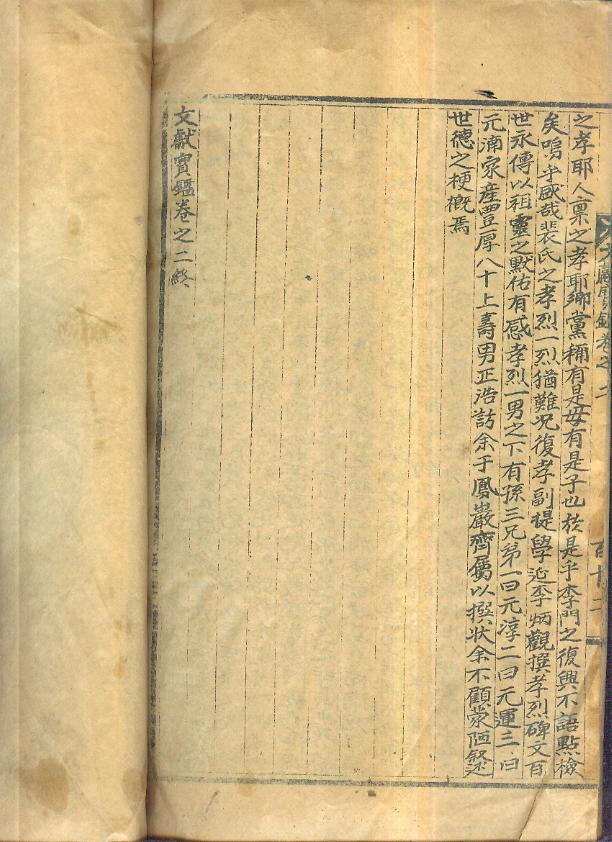 文獻寶鑑卷之二
百十二
之孝耶人稟之孝耶鄕黨稱有是母有是子也於是乎李門之復興不語點檢
矣嗚乎盛哉裴氏之孝烈一烈猶難況復孝副提學近李炳觀撰孝烈碑文百
世永傳以祖靈之默佑有感孝烈一男之下有孫三兄弟一曰元淳二曰元運三曰
元湳家産豊厚八十上壽男正浩訪余于鳳巖齊屬以撰狀余不顧蒙陋敍述
世德之梗槪焉
文獻寶鑑卷之二終